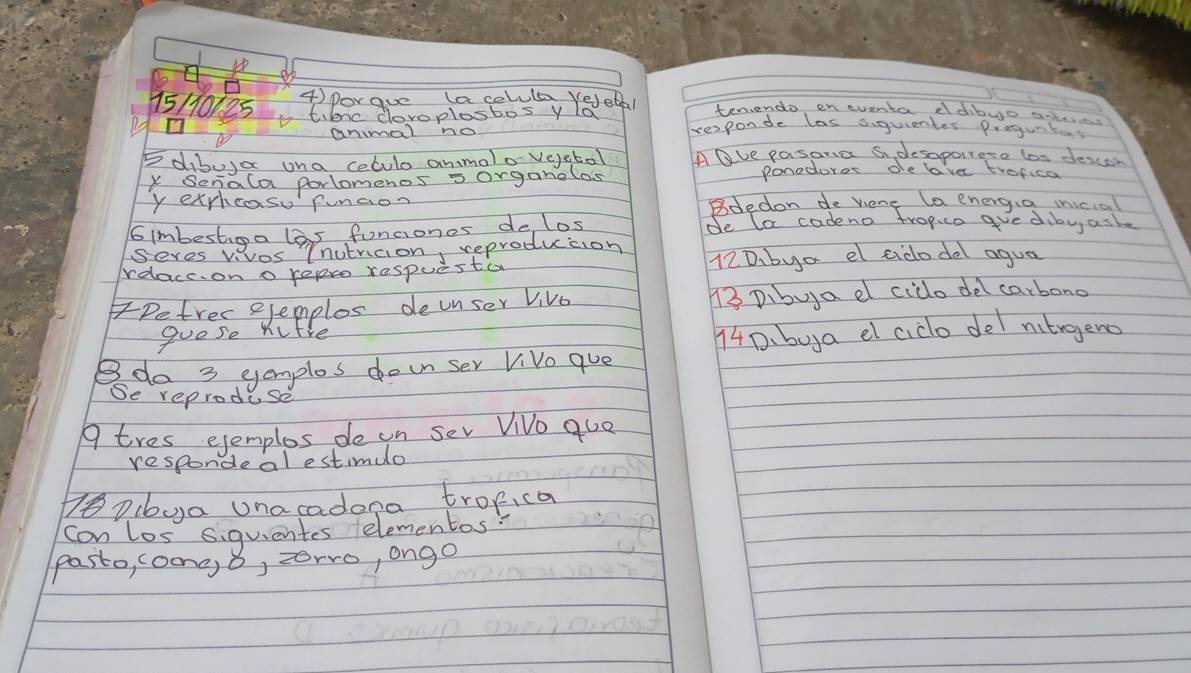 15/10/25
4) Porque la celula vejetal
tiene cloroplastos y la
animal no
5 dibuja una celula animal o vejetal
y señala porlomenos 5 organelos
y explicasu funcion
6 imbestiga las funciones de los
seres vivos (nutricion, reproduccion
relaccion o respuesta
7 De tres ejemplos de un ser vivo
que se nutre
8 da 3 gemplos de un ser vivo que
se reproduse
9 tres ejemplos de un ser vivo que
responde al estimulo
10 Dibuja una cadena trofica
con los siguientes elementos:
pasto, conejo, zorro, ongo
teniendo en cuenta el dibujo
responde las siguientes preguntas
A Que pasaria si desaparese los descon
ponedores de la trofica
B dedon de viene la energia inicial
de la cadena tropica que dibujaste
12 Dibuja el ciclo del agua
13 Dibuja el ciclo del carbono
14 Dibuja el ciclo del nitrogeno